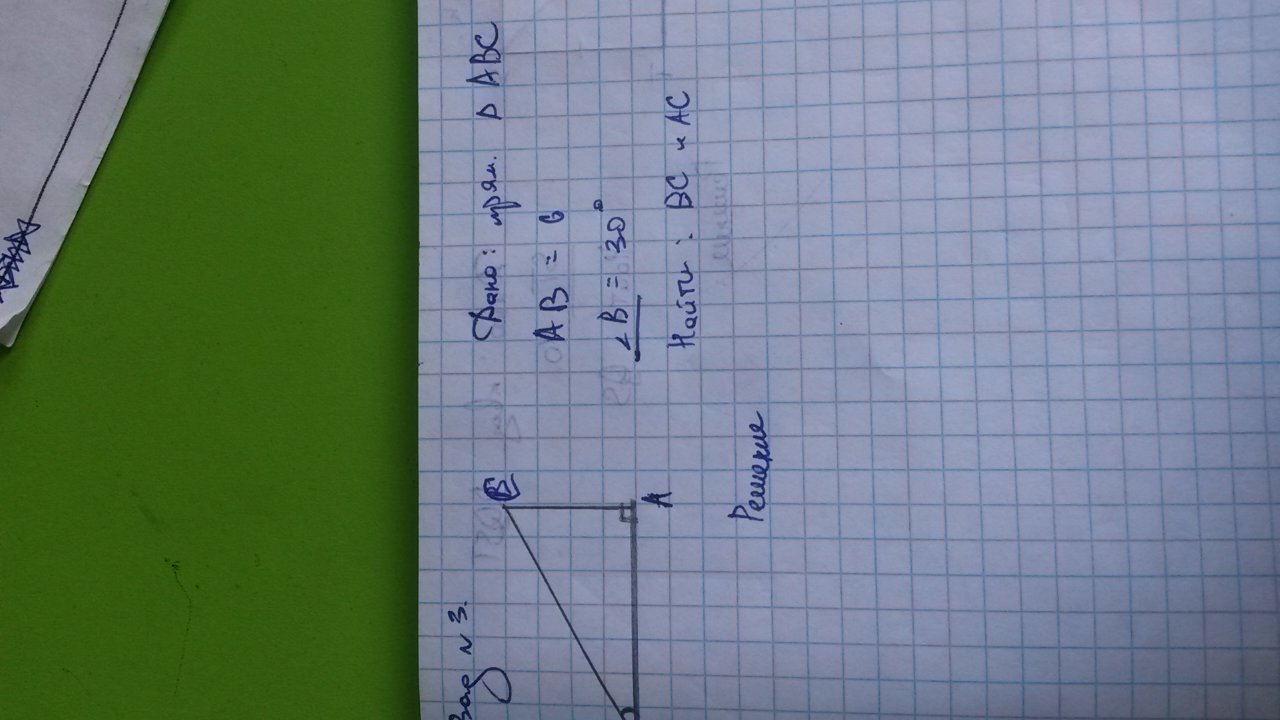 Зад N 3.
B
A
Дано: прям. △ ABC
AB = 6
∠B = 30°
Найти: BC и AC
Решение